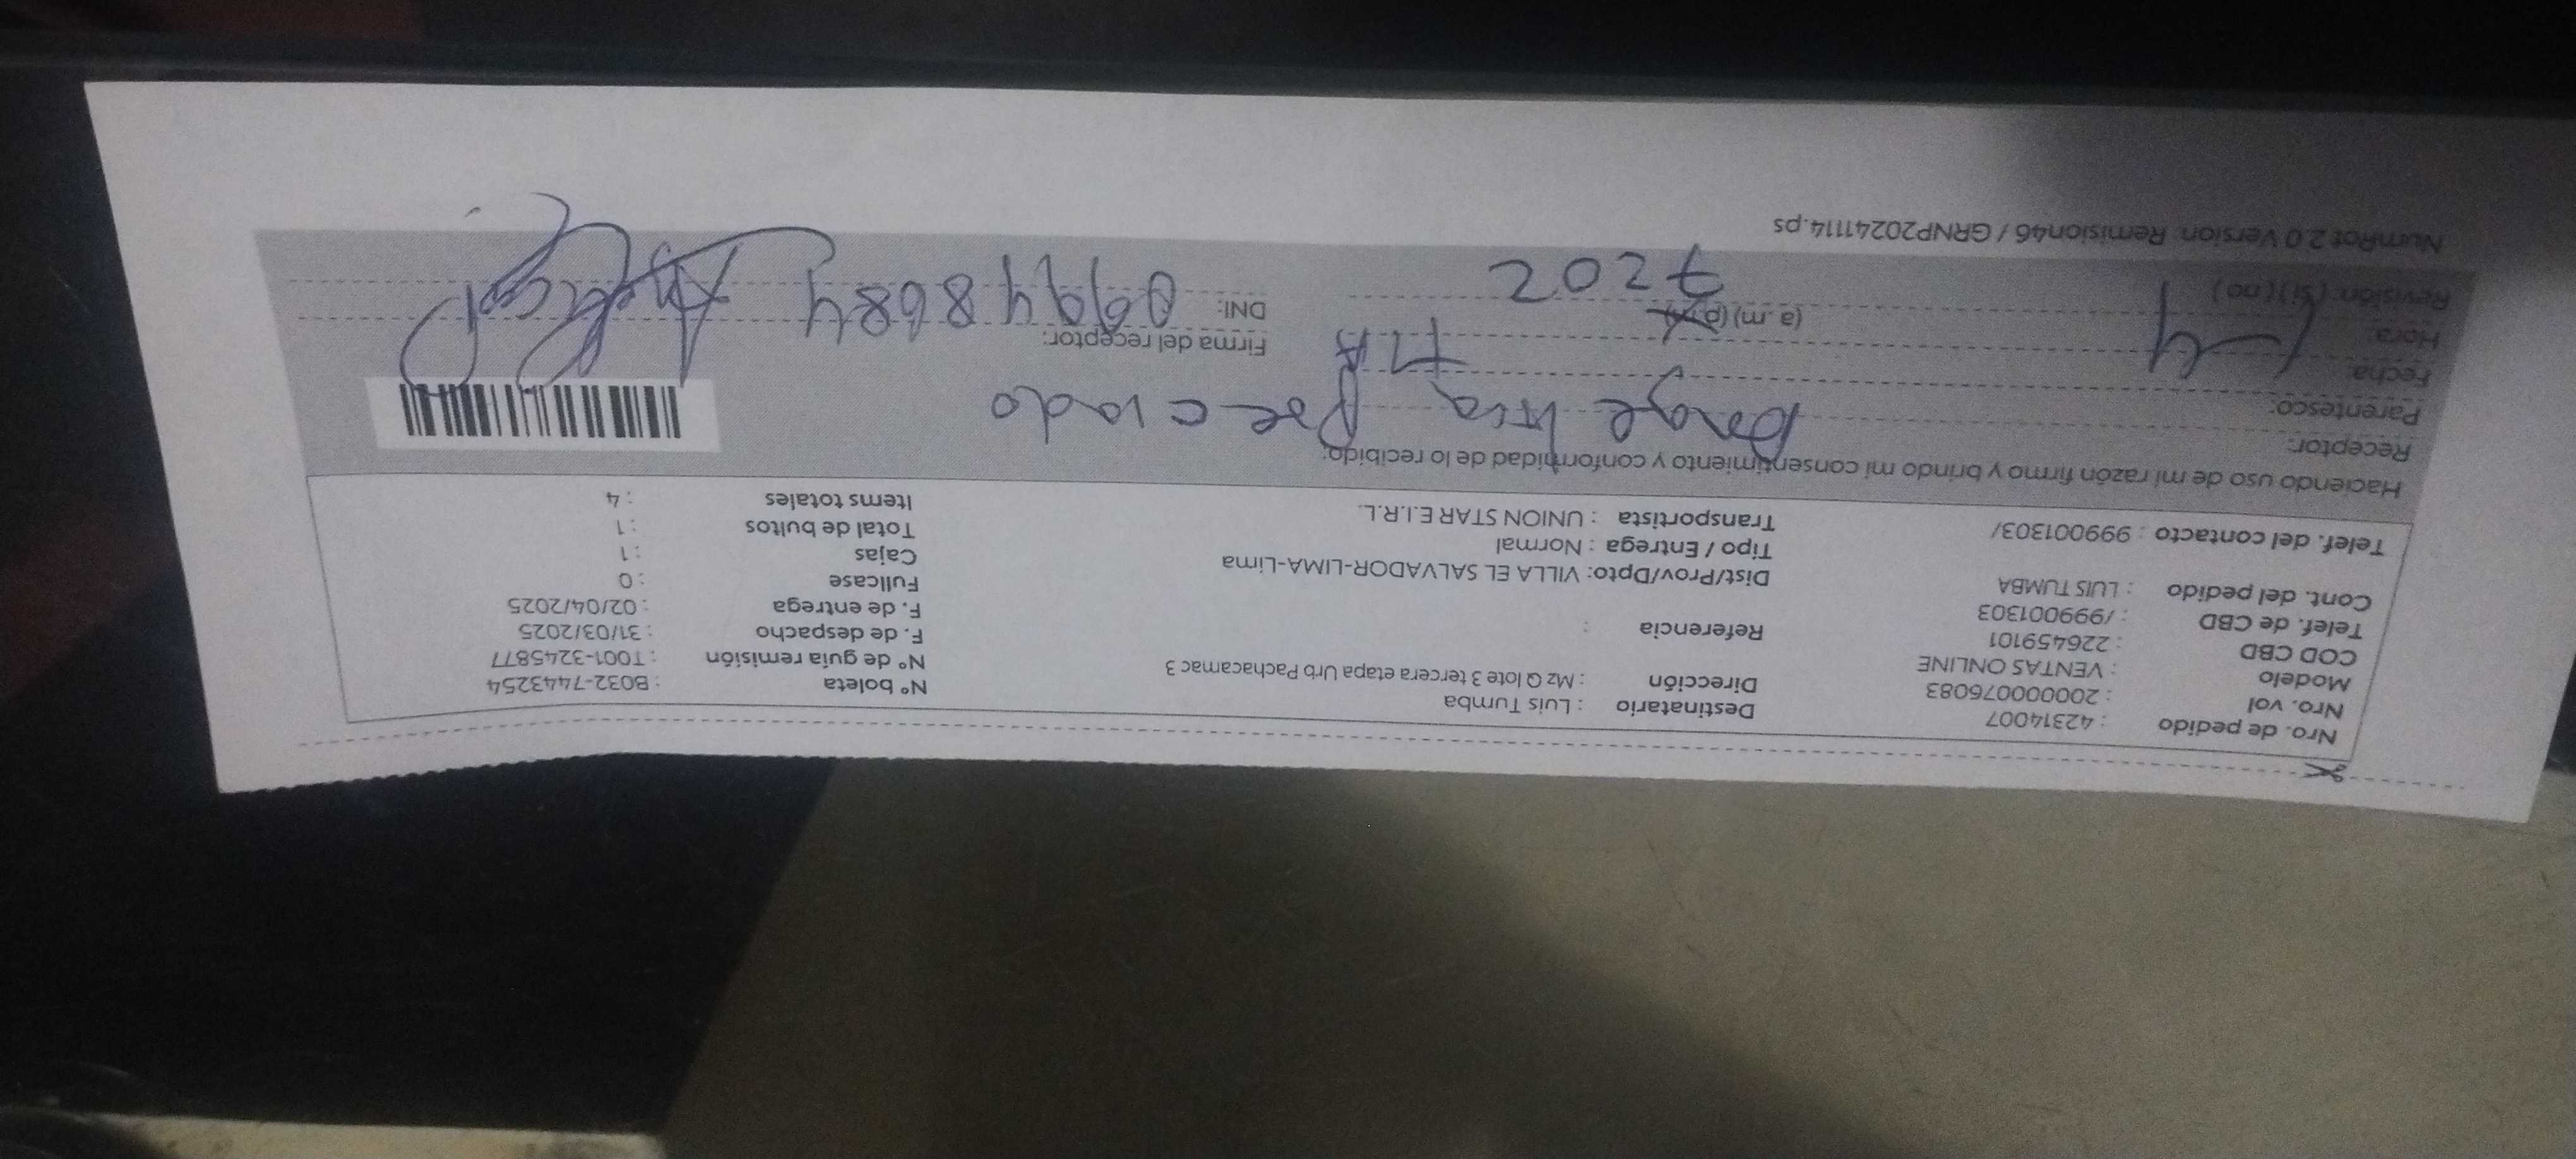 Nro. de pedido : 42314007
Nro. vol : 20000076083
Modelo : VENTAS ONLINE
COD CBD : 226459101
Telef. de CBD : /999001303
Cont. del pedido : LUIS TUMBA
Telef. del contacto : 999001303/
Destinatario : Luis Tumba
Dirección : Mz Q lote 3 tercera etapa Urb Pachacamac 3
Referencia :
Dist/Prov/Dpto: VILLA EL SALVADOR-LIMA-Lima
Tipo / Entrega : Normal
Transportista : UNION STAR E.I.R.L.
Nº boleta : B032-7443254
Nº de guía remisión : T001-3245877
F. de despacho : 31/03/2025
F. de entrega : 02/04/2025
Fullcase : 0
Cajas : 1
Total de bultos : 1
Items totales : 4
Haciendo uso de mi razón firmo y brindo mi consentimiento y conformidad de lo recibido:
Receptor:
Preciado
Parentesco:
TIA
Fecha:
Hora
(a.m) (p.m)
Firma del receptor:
Revisión: (si) (no)
7202
DNI: 09948684
NumRot 2.0 Version: Remision46 / GRNP20241114.ps